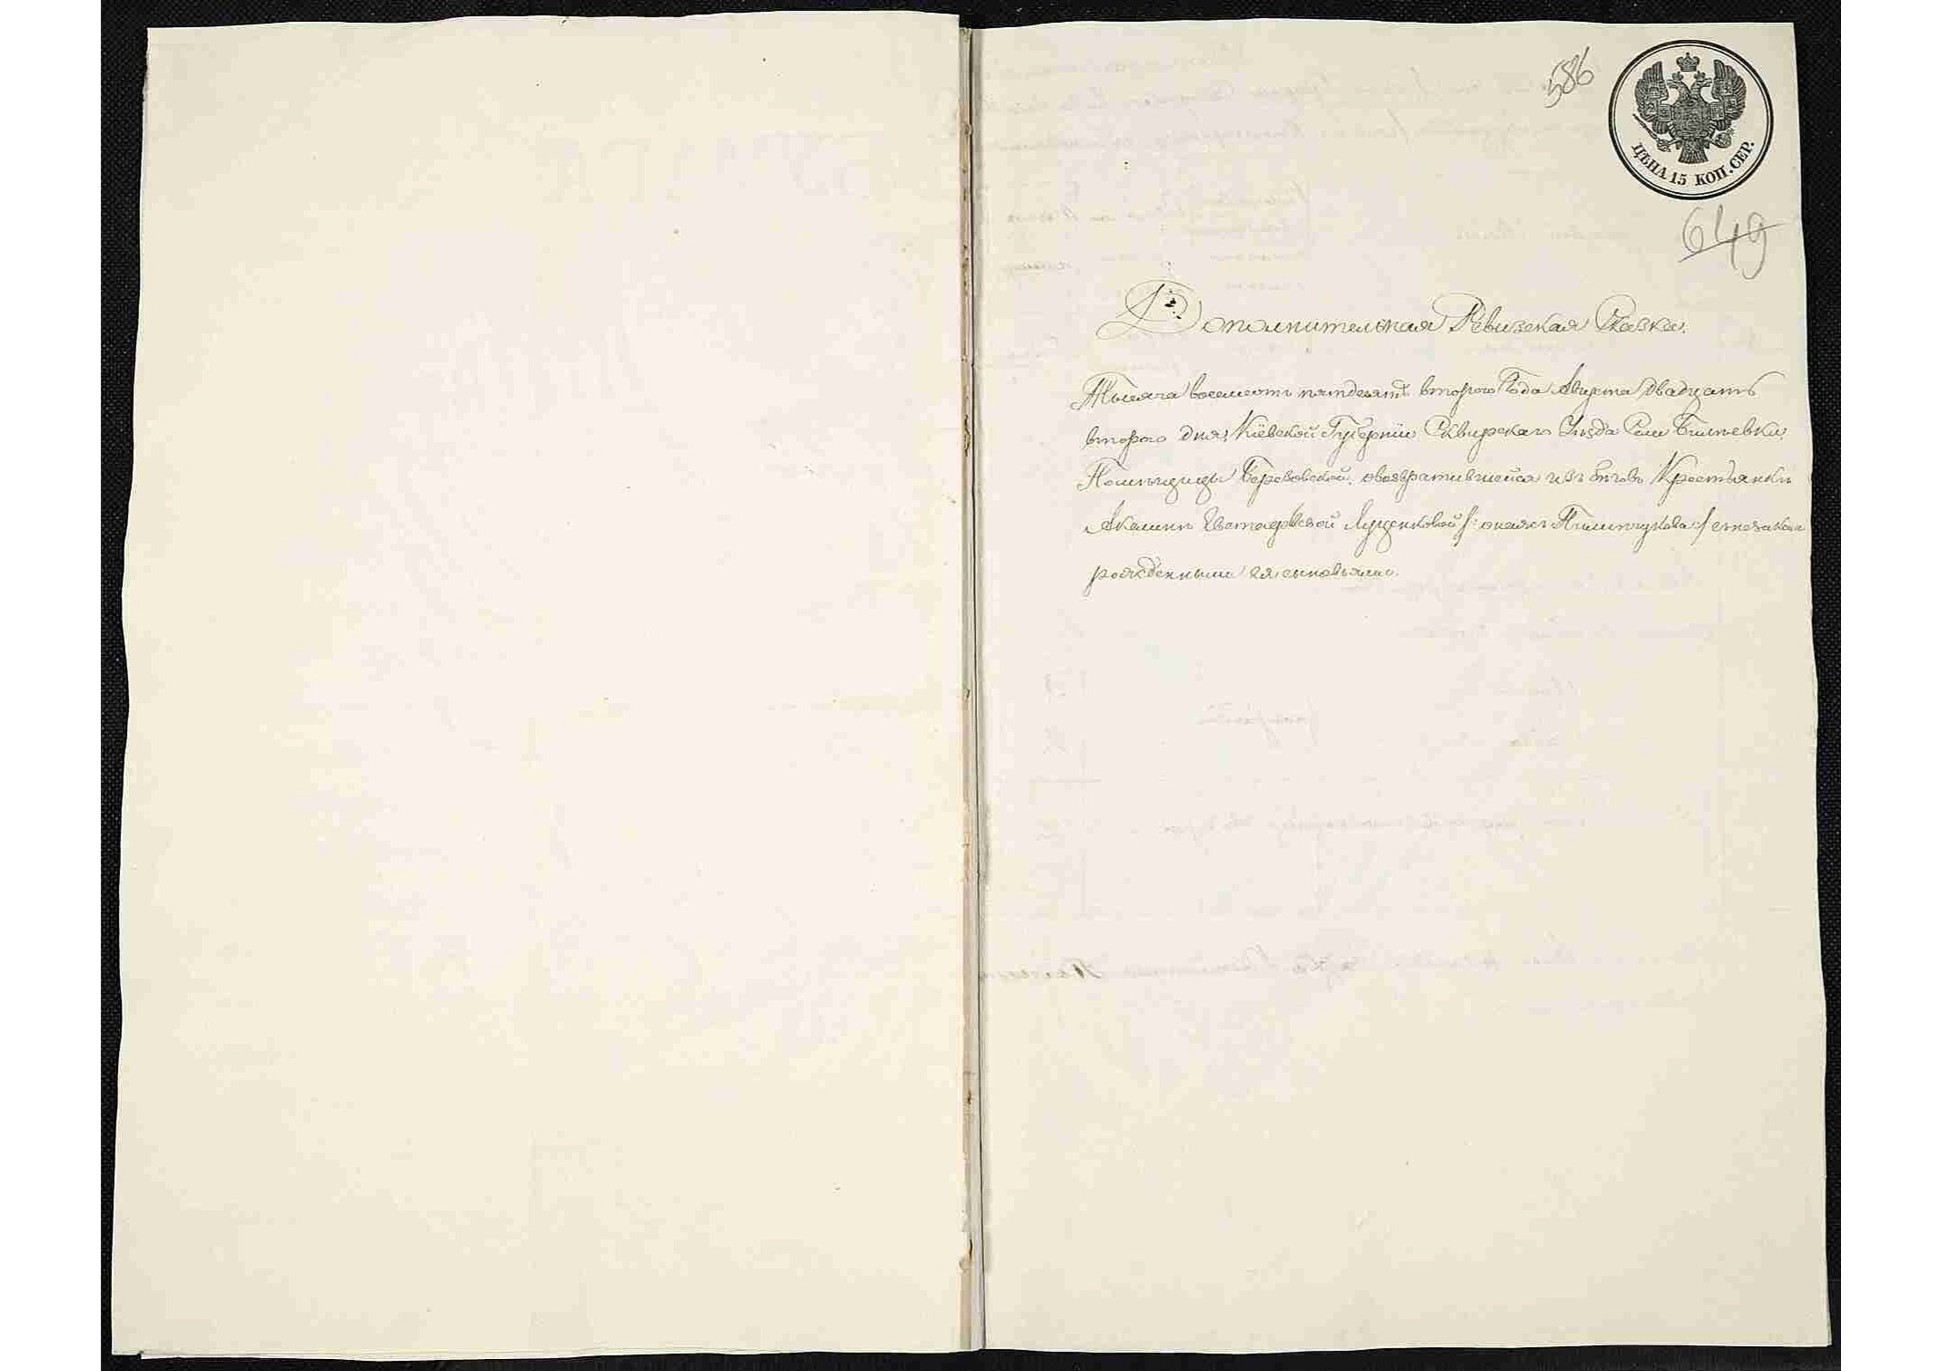 586
ЦѢНА 15 КОП. СЕР.
649
Дополнительная Ревизская Сказка.
Тысяча восемсотъ пятдесятъ второго Года Августа двадцать
второго дня, Кіевской Губерніи Сквирскаго Уѣзда Села
Помѣщицы Березовской, овозвратившейся изъ бѣговъ Крестьянкѣ
Акелинѣ Луценковой /: онаяжъ Пилипчукова :/
рожденными ея сыновьями.